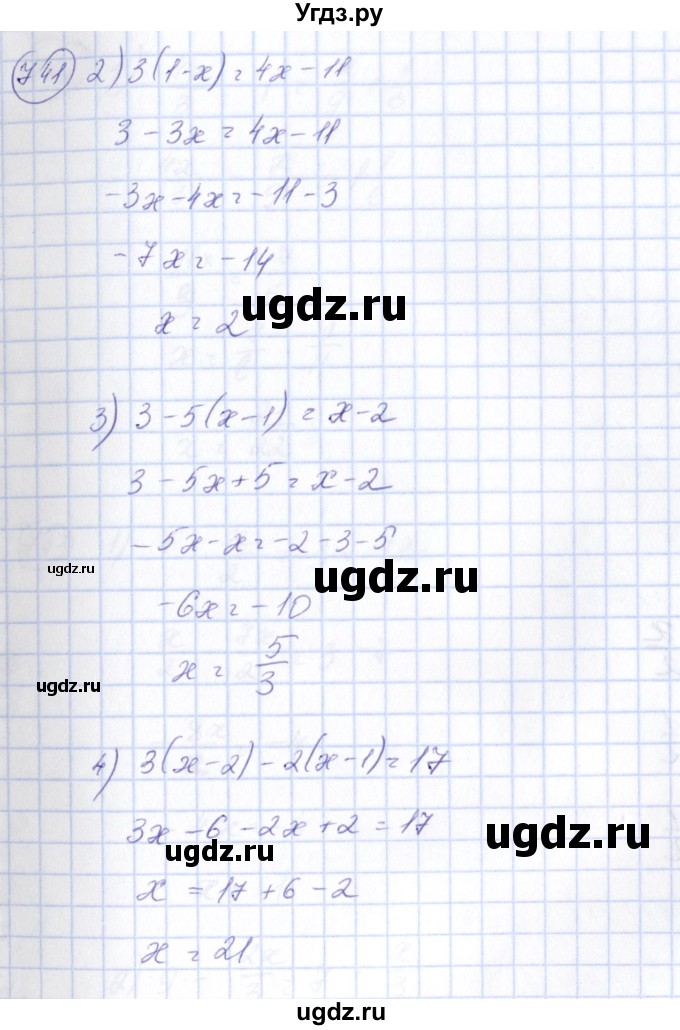 Угдз.ру
741 2) 3(1-x) = 4x-11
3 - 3x = 4x-11
-3x-4x = -11-3
-7x = -14
ugdz.ru
x = 2
3) 3-5(x-1) = x-2
3-5x+5 = x-2
-5x-x = -2-3-5
ugdz.ru
ugdz.ru
-6x = -10
x = 5/3
ugdz.ru
4) 3(x-2)-2(x-1) = 17
3x-6-2x+2 = 17
ugdz.ru
ugdz.ru
x = 17+6-2
x = 21
ugdz.ru